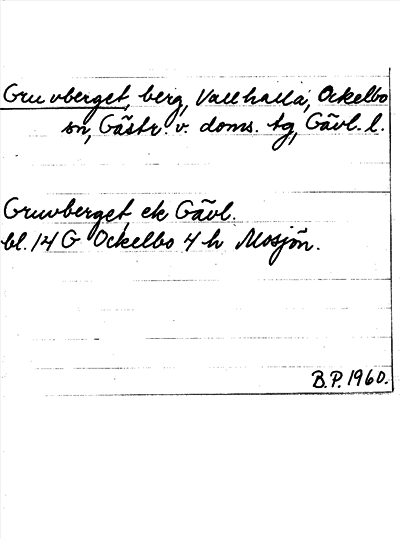 Gruvberget, berg, Vallhalla, Ockelbo
sn, Gästr. v. doms. tg, Gävl. l.
Gruvberget ek Gävl.
bl. 14 G Ockelbo 4 h Mosjön.
B.P. 1960.